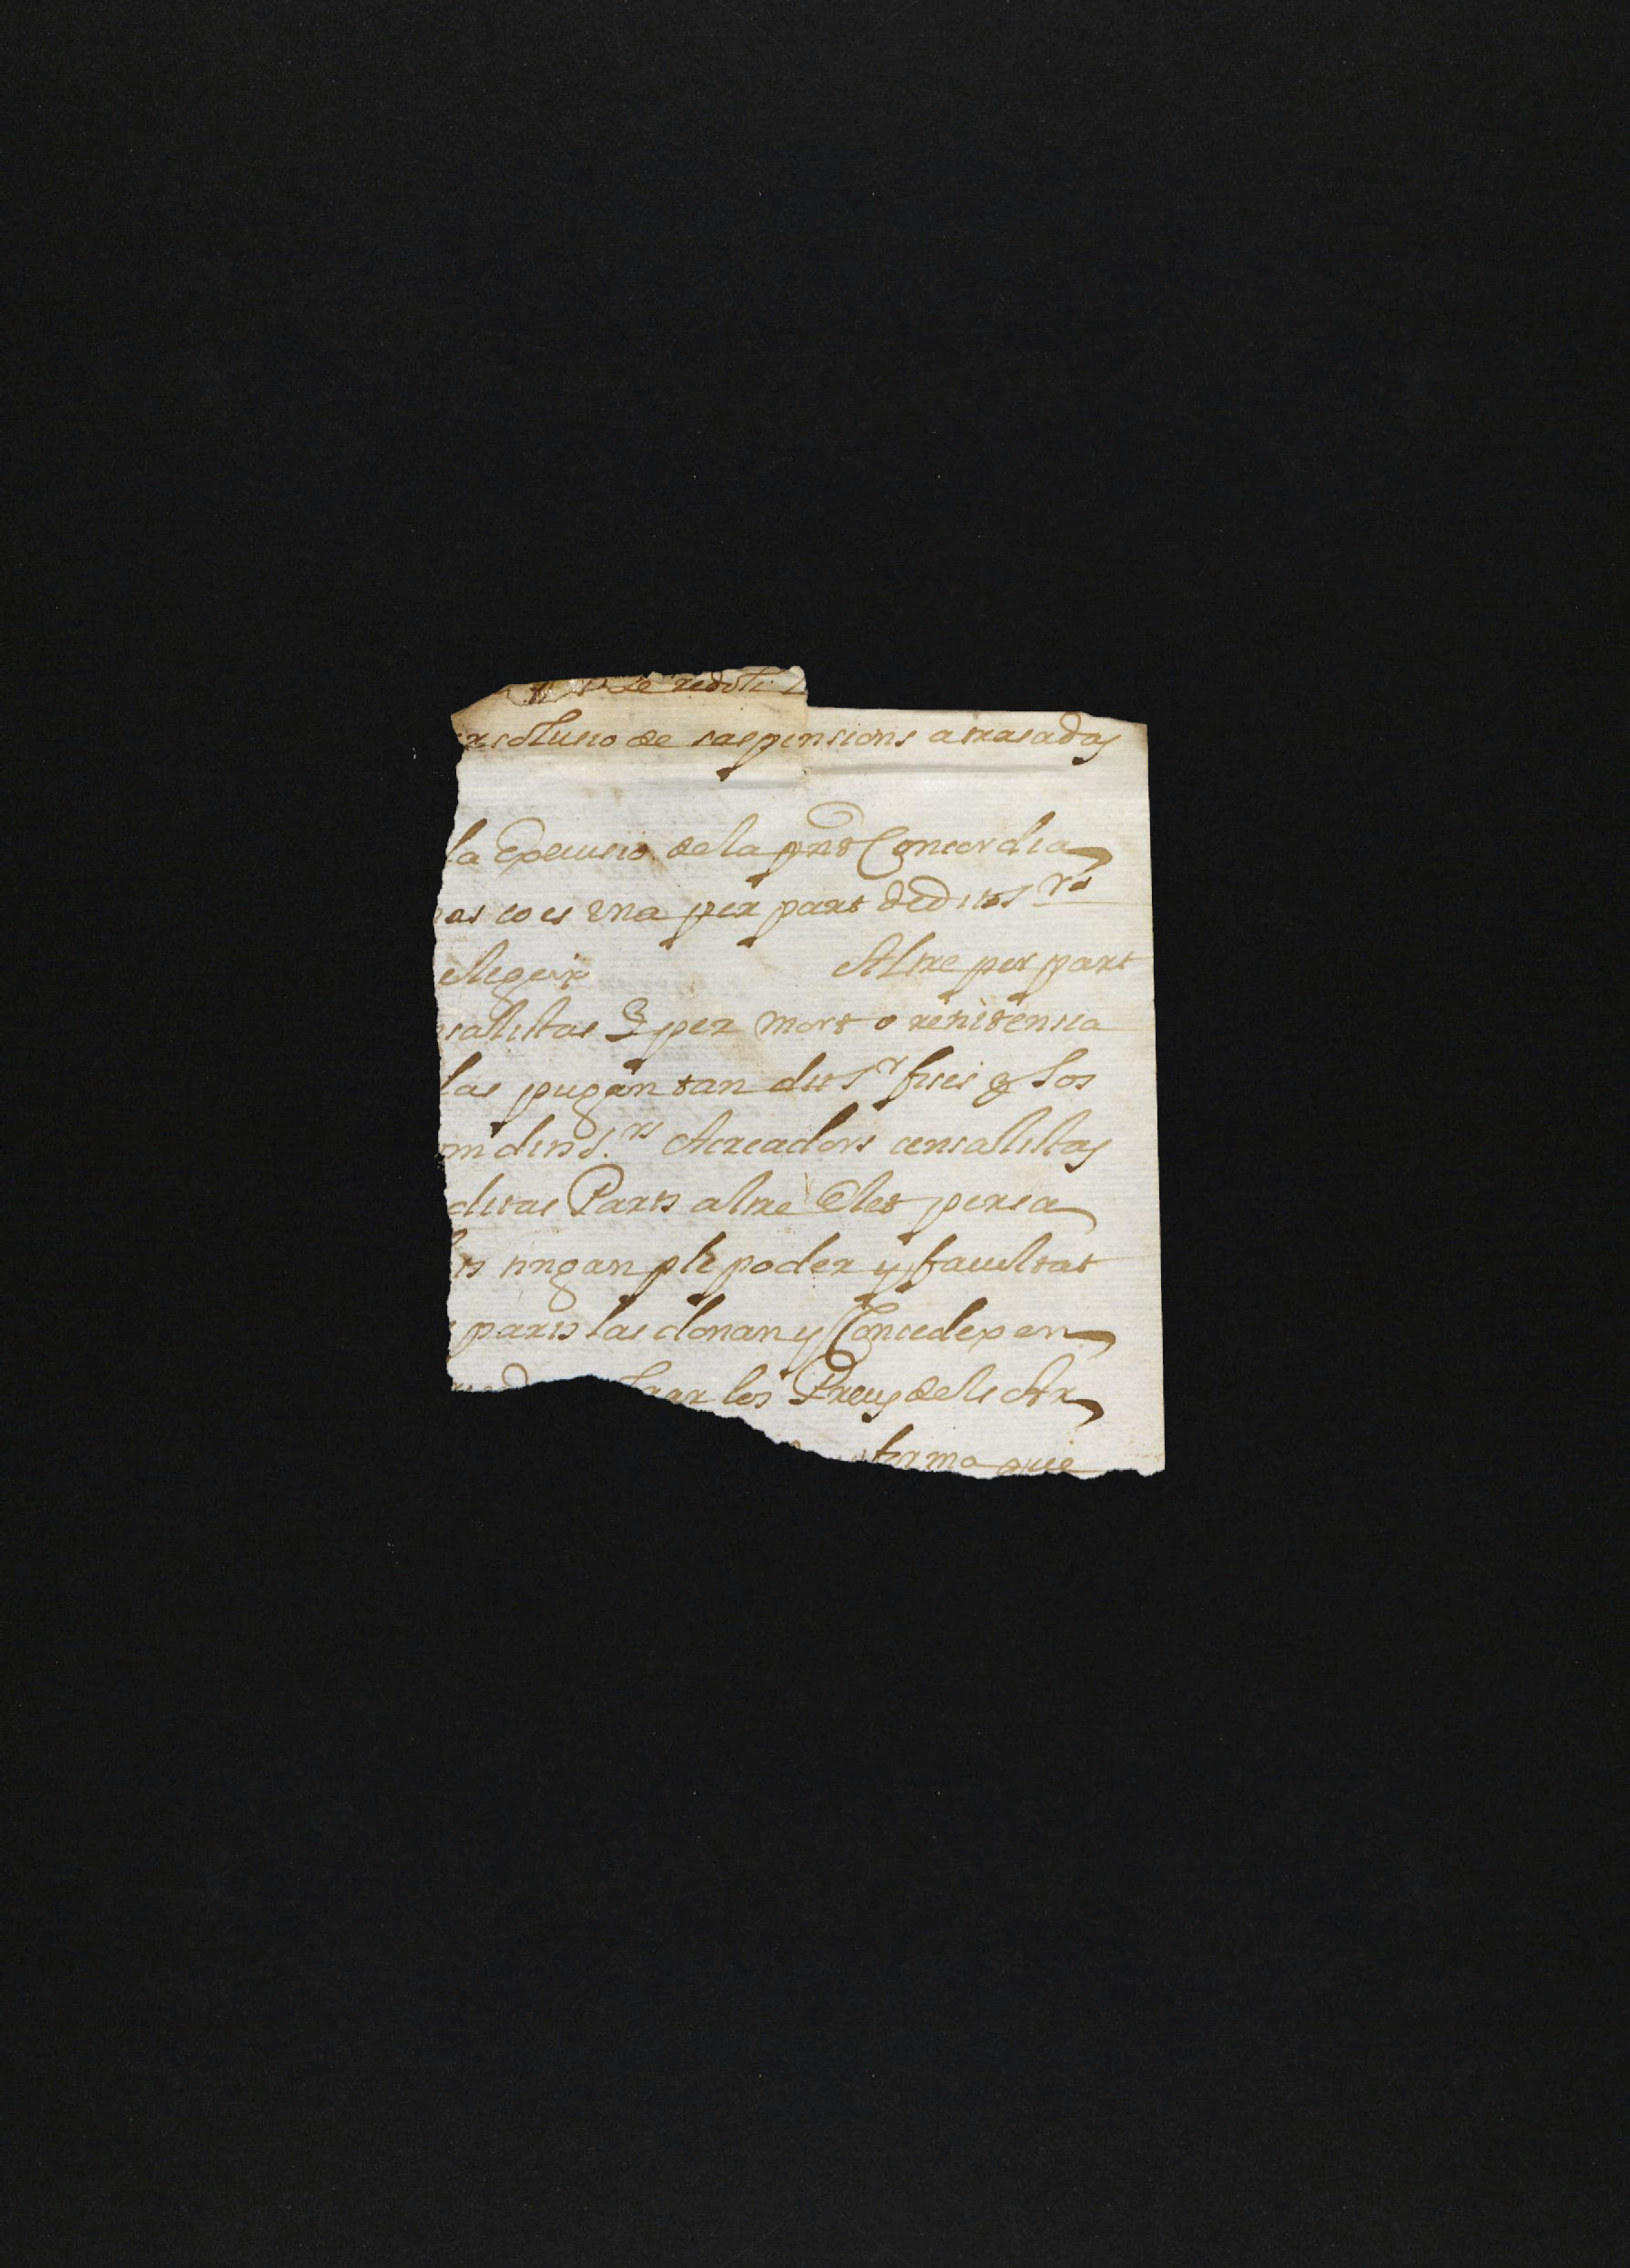 se redoti
solusio de las pensions atrasadas
la Execusio de la pnt Concordia
as co es una per part de dits Srs
elegeix Altre per part
sallistas Y per mort o renitensia
las pugan tan dit Sr si y los
m dits Srs Acreadors censallistas
ditas Parts altre Elet per sa
ts tingan ple poder y facultat
parts las donan y Concedexen
los Preus dels Ar
forma que